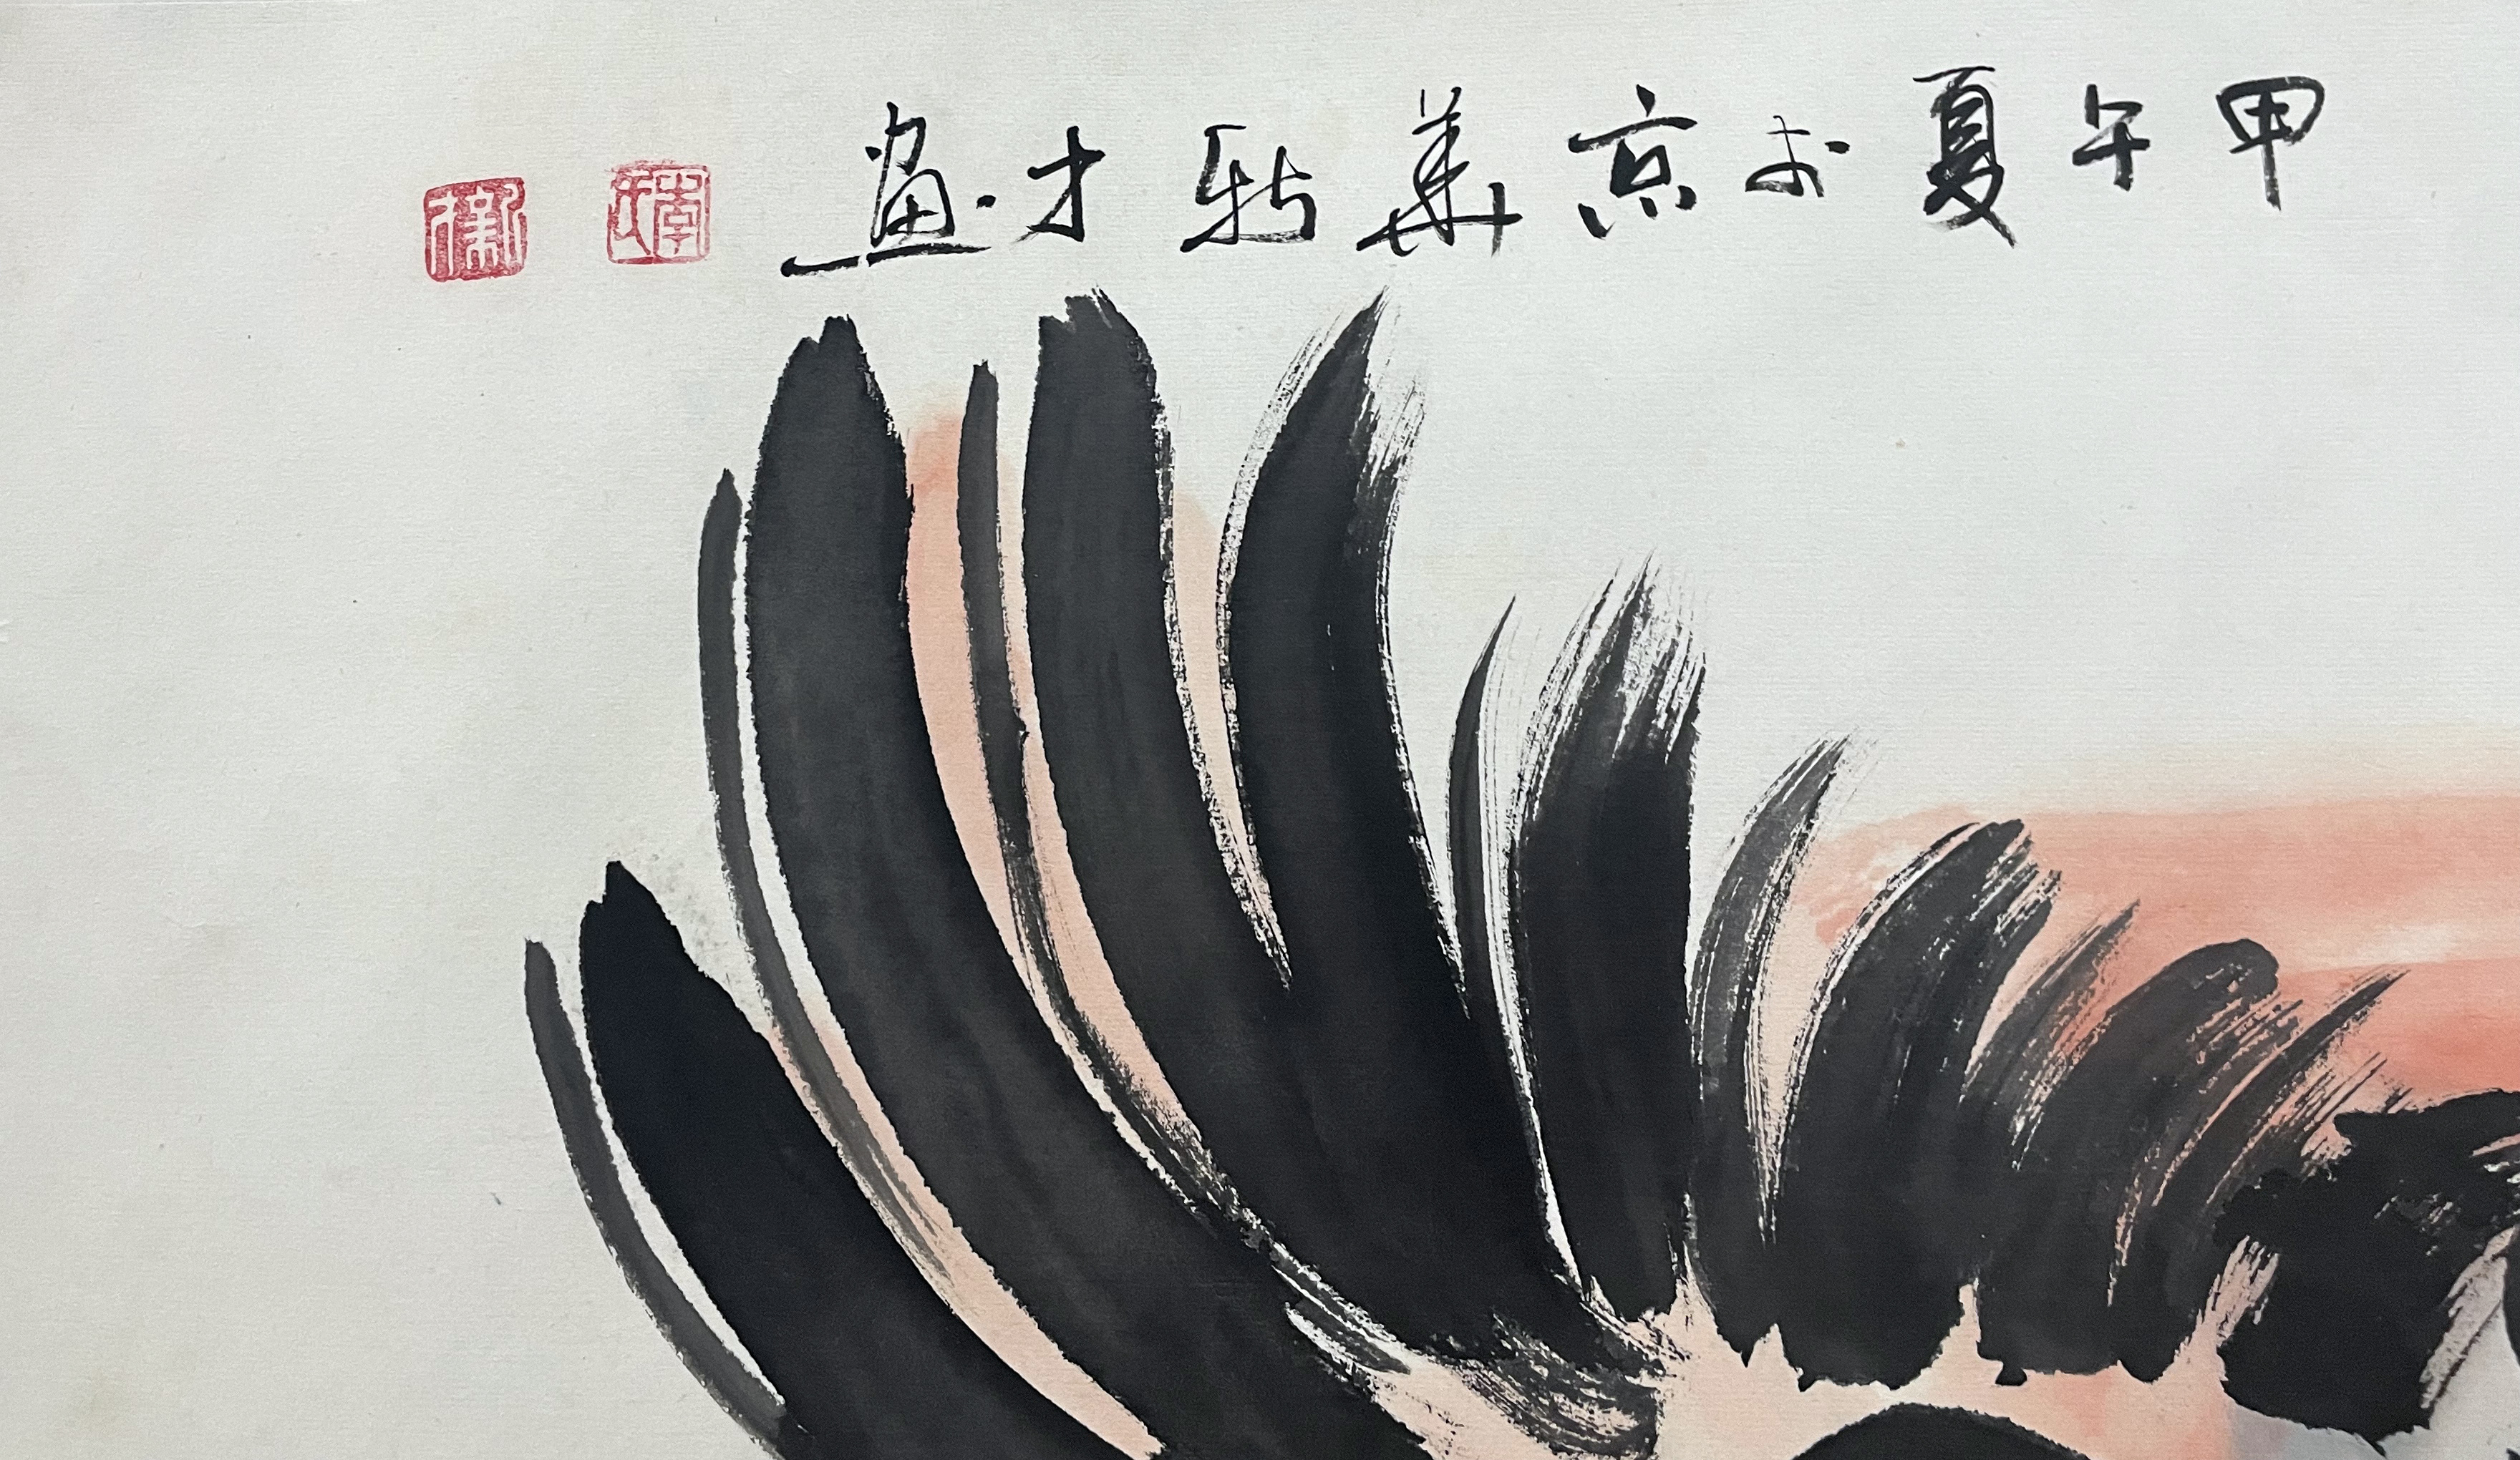 甲午夏於京華新才画